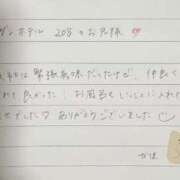 ホテル 208 のお兄様 ♥
は緊張気味だったけど、仲良く
れて良かった! お風呂もいっしょに入れ
せでした ありがとうございました